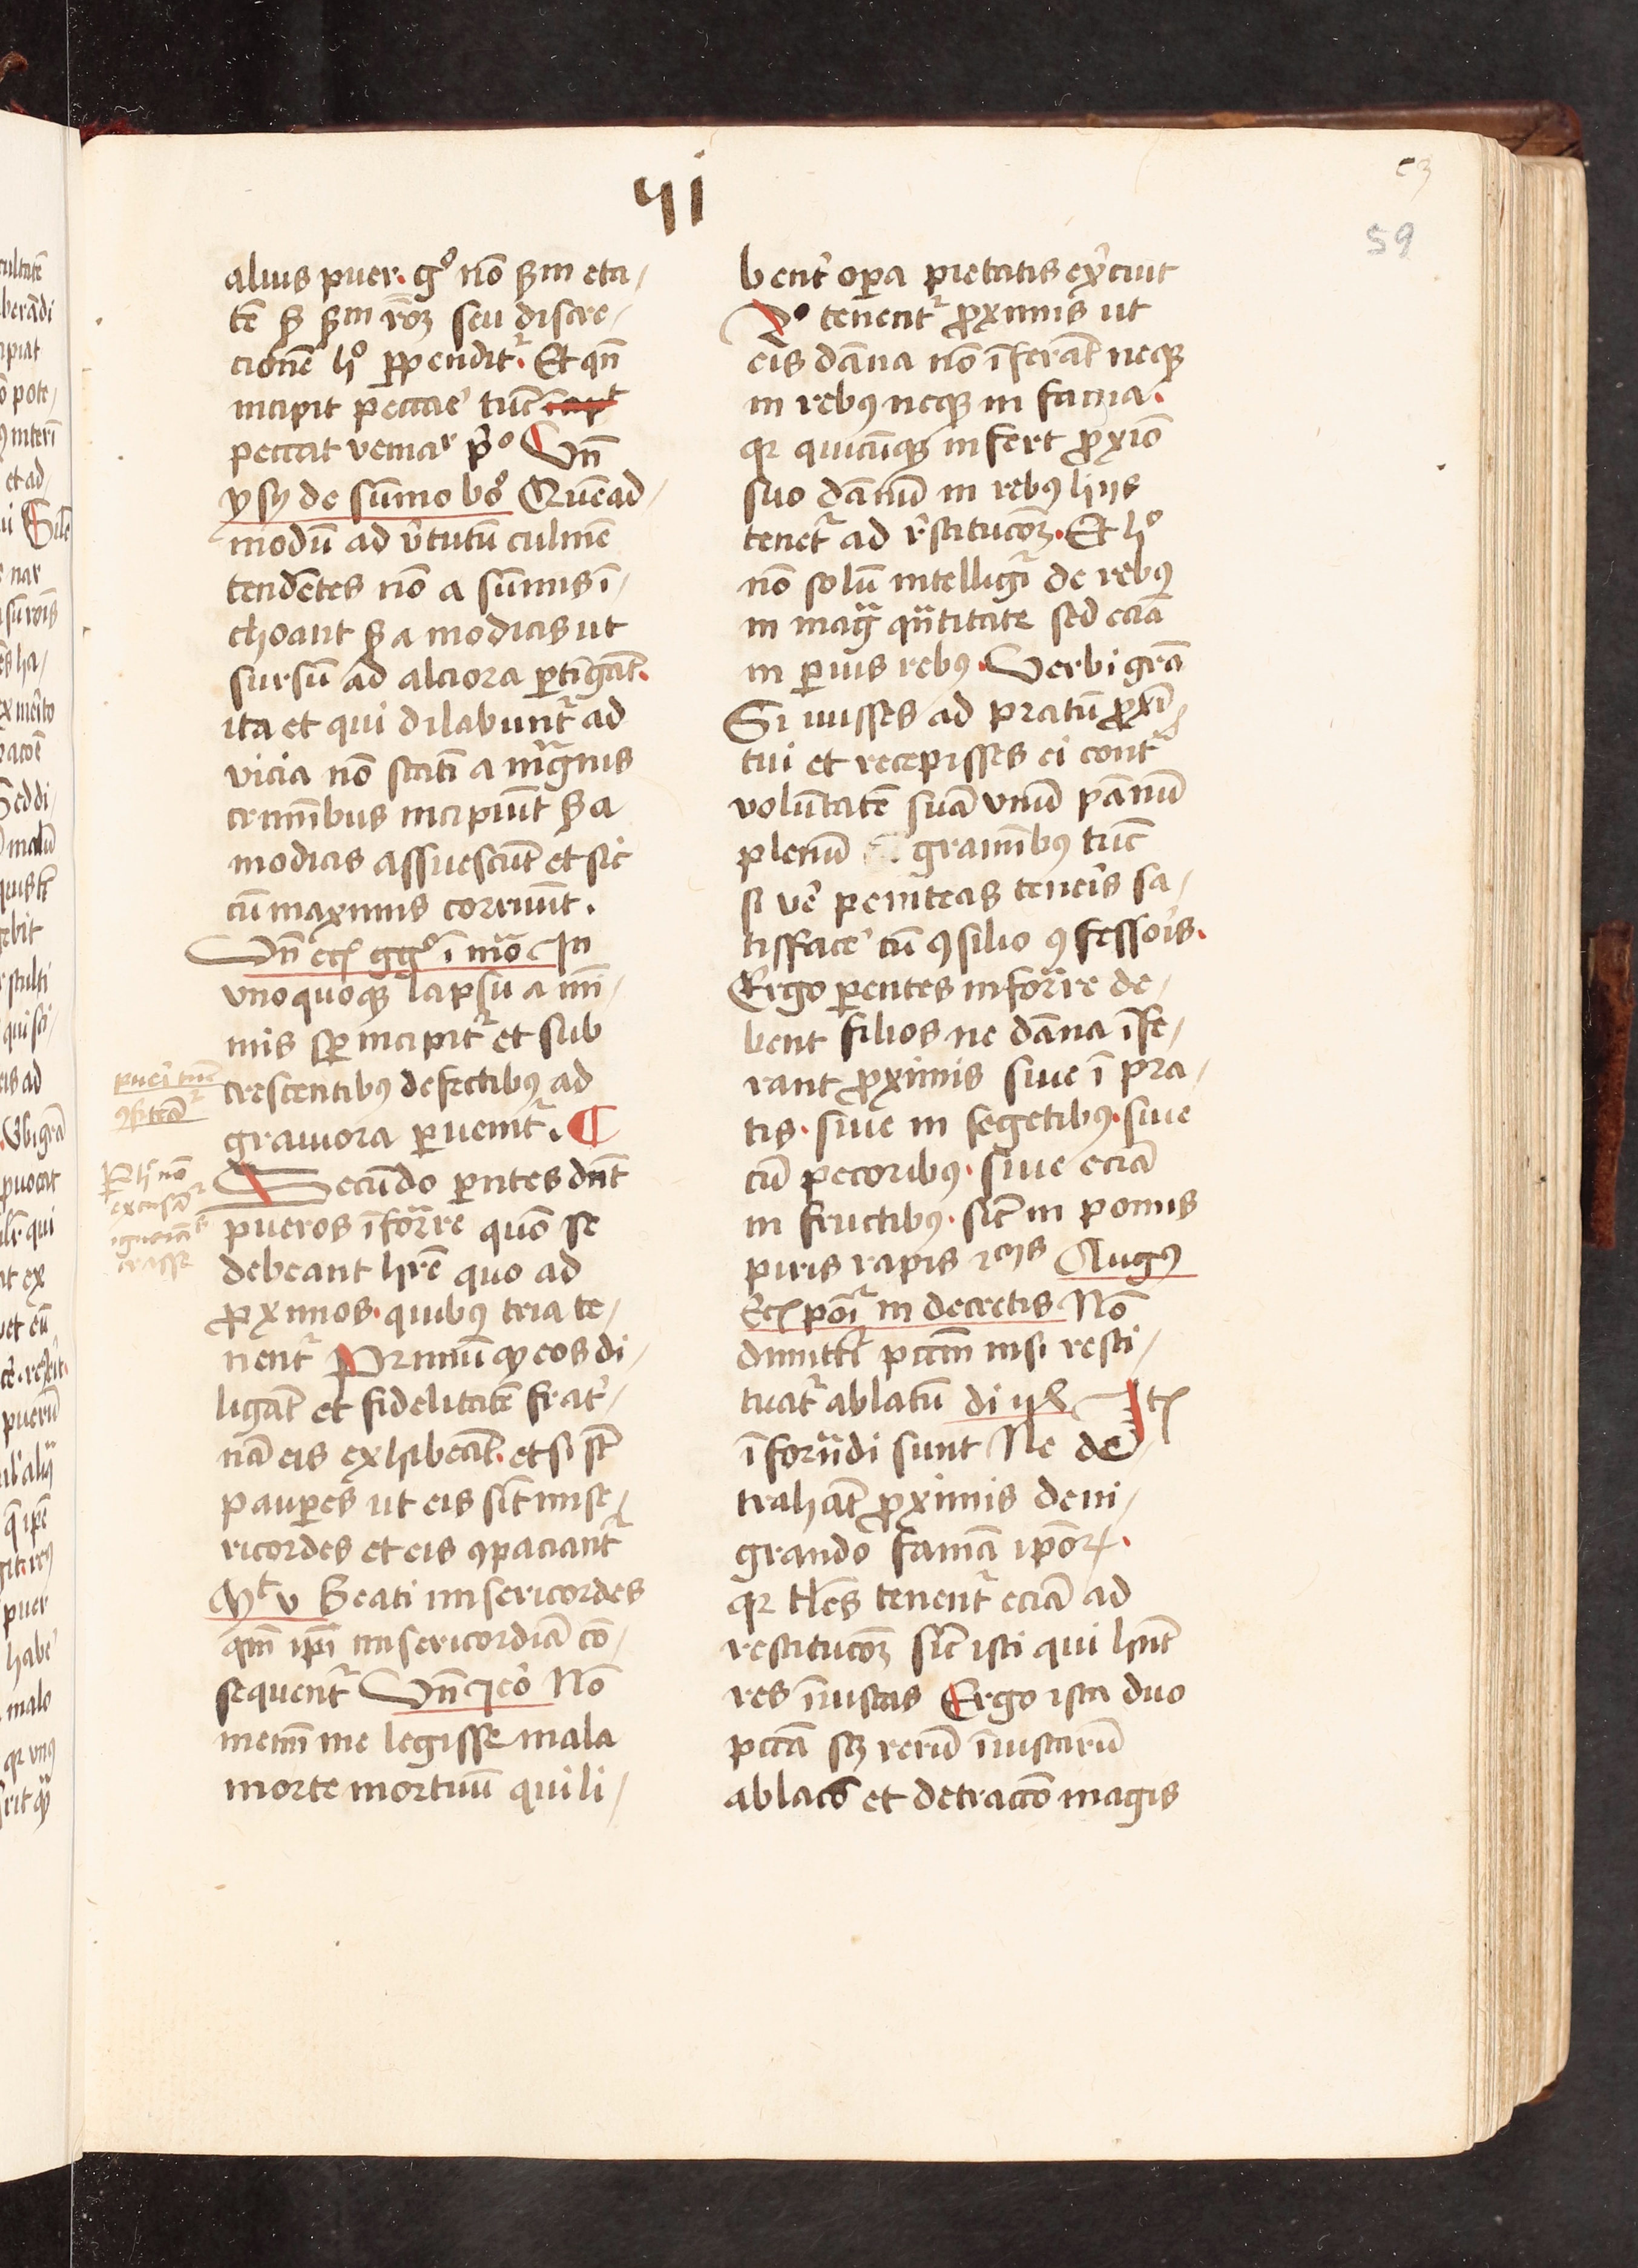 yi
53
59
alius puer. gͦ nō scḋm eta/
tē sꝫ scḋm rōꝫ seu discre/
cionē hͦ ꝑpenditᷣ. Et qn̄
incipit pecca͛e tūc
peccat veniaͬr pͦ Vn̄
ysỹ de sūmo boͦ Quēad/
modū ad v͛tutū culmē
tendētes nō a sūmis ī/
choant sꝫ a modicis ut
sursū ad alciora ꝑtīgāt.
ita et qui dilabuntᷣ ad
vicia nō statī a magnis
crimībus incipiūt sꝫ a
modicis assuescūt et sic
cū maximis corruūt.
Vn̄ ecꝭ ggͦ ī mͦ In
vnoquoqꝫ lapsu a mī/
mis sꝑ incipitᷣ et sub
crescentibꝰ defectibꝰ ad
grauiora ꝑuenitᷣ. ¶
Secūdo ꝑntes dn̄t
pueros īforͣre quō se
debeant hr̄e quo ad
ꝓximos. quibꝰ tria te/
nentᷣ Primū qꝫ eos di/
ligāt et fidelitatē frat͛/
nā eis exhibeāt. et si st̄
pauꝑes ut eis sīt mise/
ricordes et eis ꝯpaciantᷣ
Mͭ v Beati misericordes
qm̄ ip̄i misericordiā cō/
sequentᷣ Vn̄ Jeͦ Nō
memī me legisse mala
morte mortuū qui li/
puei tūc
ꝯfiteāᷣ
Ꝑ h nō
excusāᷣ
ignorāˢ
crasse
bent͛ oꝑa pietatis ex͛cuit
2ͦ tenentᷣ ꝓximis ut
eis dāna nō īferāt neqꝫ
in rebꝰ neqꝫ in fama.
qꝛ quicūqꝫ infert ꝓxīo
suo dānū in rebꝰ hijs
tenetᷣ ad r͛stitucōꝫ. Et hͦ
nō solū intelligiᷣ de rebꝰ
in magͣ qn̄titate sed eciā
in ꝑuis rebꝰ. Verbi grā
Si iuisses ad pratū ꝓxī
tui et recepisses ei contᷓ
voluntatē suā vnū pānū
plenū gramībꝰ tūc
si ve͛ peniteas tene͛is sa/
tisface͛ cū ꝯsilio ꝯfesso͛is.
Ergo ꝑentes inforͣre de/
bent filios ne dāna īfe/
rant ꝓximis siue ī pra/
tis. siue in segetibꝰ. siue
cū pecoribꝰ. siue eciā
in fructibꝰ. sic̄ in pomis
piris rapis ⁊cͥˢ Augꝰ
Ecꝭ poīᷣ in decretis Nō
dimittiᷣ pcc̄m nisi resti/
tuatᷣ ablatū di Itꝭ
īforͣndi sunt Ne de/
trahāt ꝓximis deni/
grando famā ip̄oꝝ.
qꝛ tl̄es tenentᷣ eciā ad
restitucōꝫ sic̄ isti qui hn̄t
res īiustas Ergo ista duo
pcc̄ā scꝫ rerū īiustarū
ablacō et detraccō magis